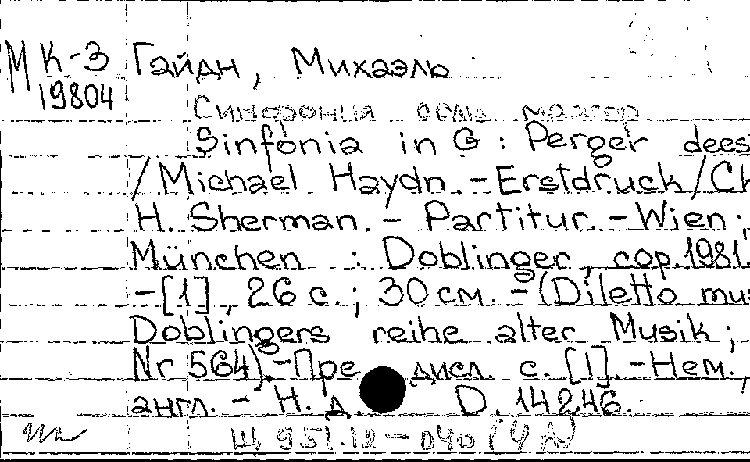 М К-3 Гайдн, Михаэль
19804
Симфония соль мажор
Sinfonia in G : Perger dees
/ Michael Haydn. - Erstdruck / Ch
H. Sherman. - Partitur. - Wien ;
München : Doblinger, cop. 1981.
- [1], 26 с. ; 30 см. - (Diletto mu
Doblingers reihe alter Musik ;
Nr 564). - Пре дисл. с. [1]. - Нем.,
англ. - Н. д. D. 14 246.